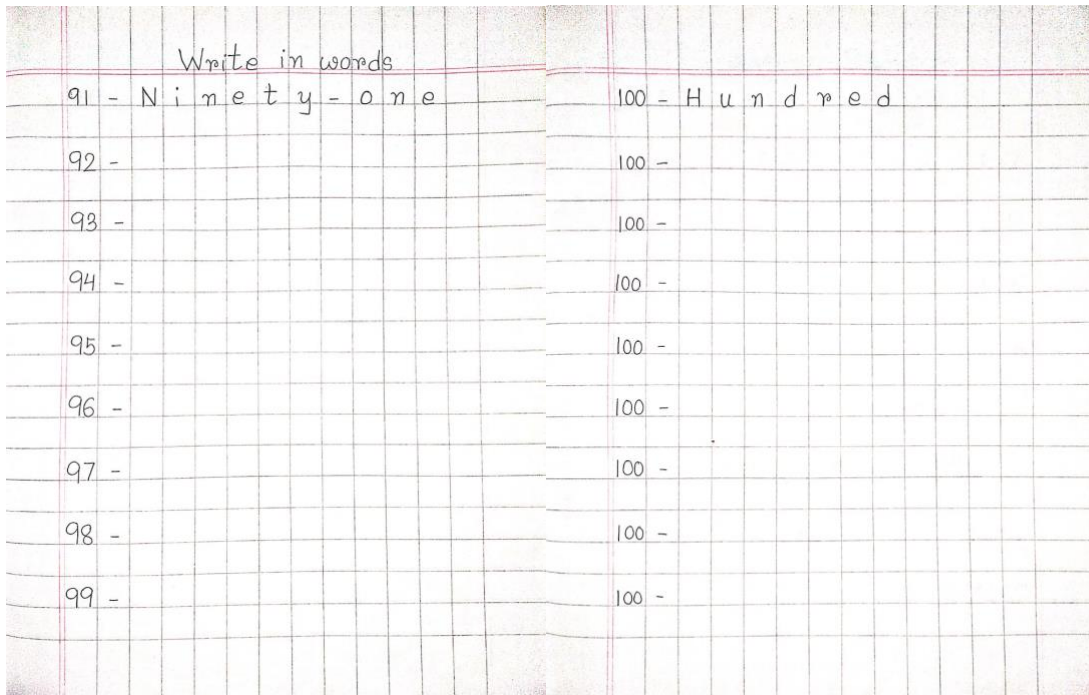 Write in words
91 - Ninety-one
92 -
93 -
94 -
95 -
96 -
97 -
98 -
99 -
100 - Hundred
100 -
100 -
100 -
100 -
100 -
100 -
100 -
100 -